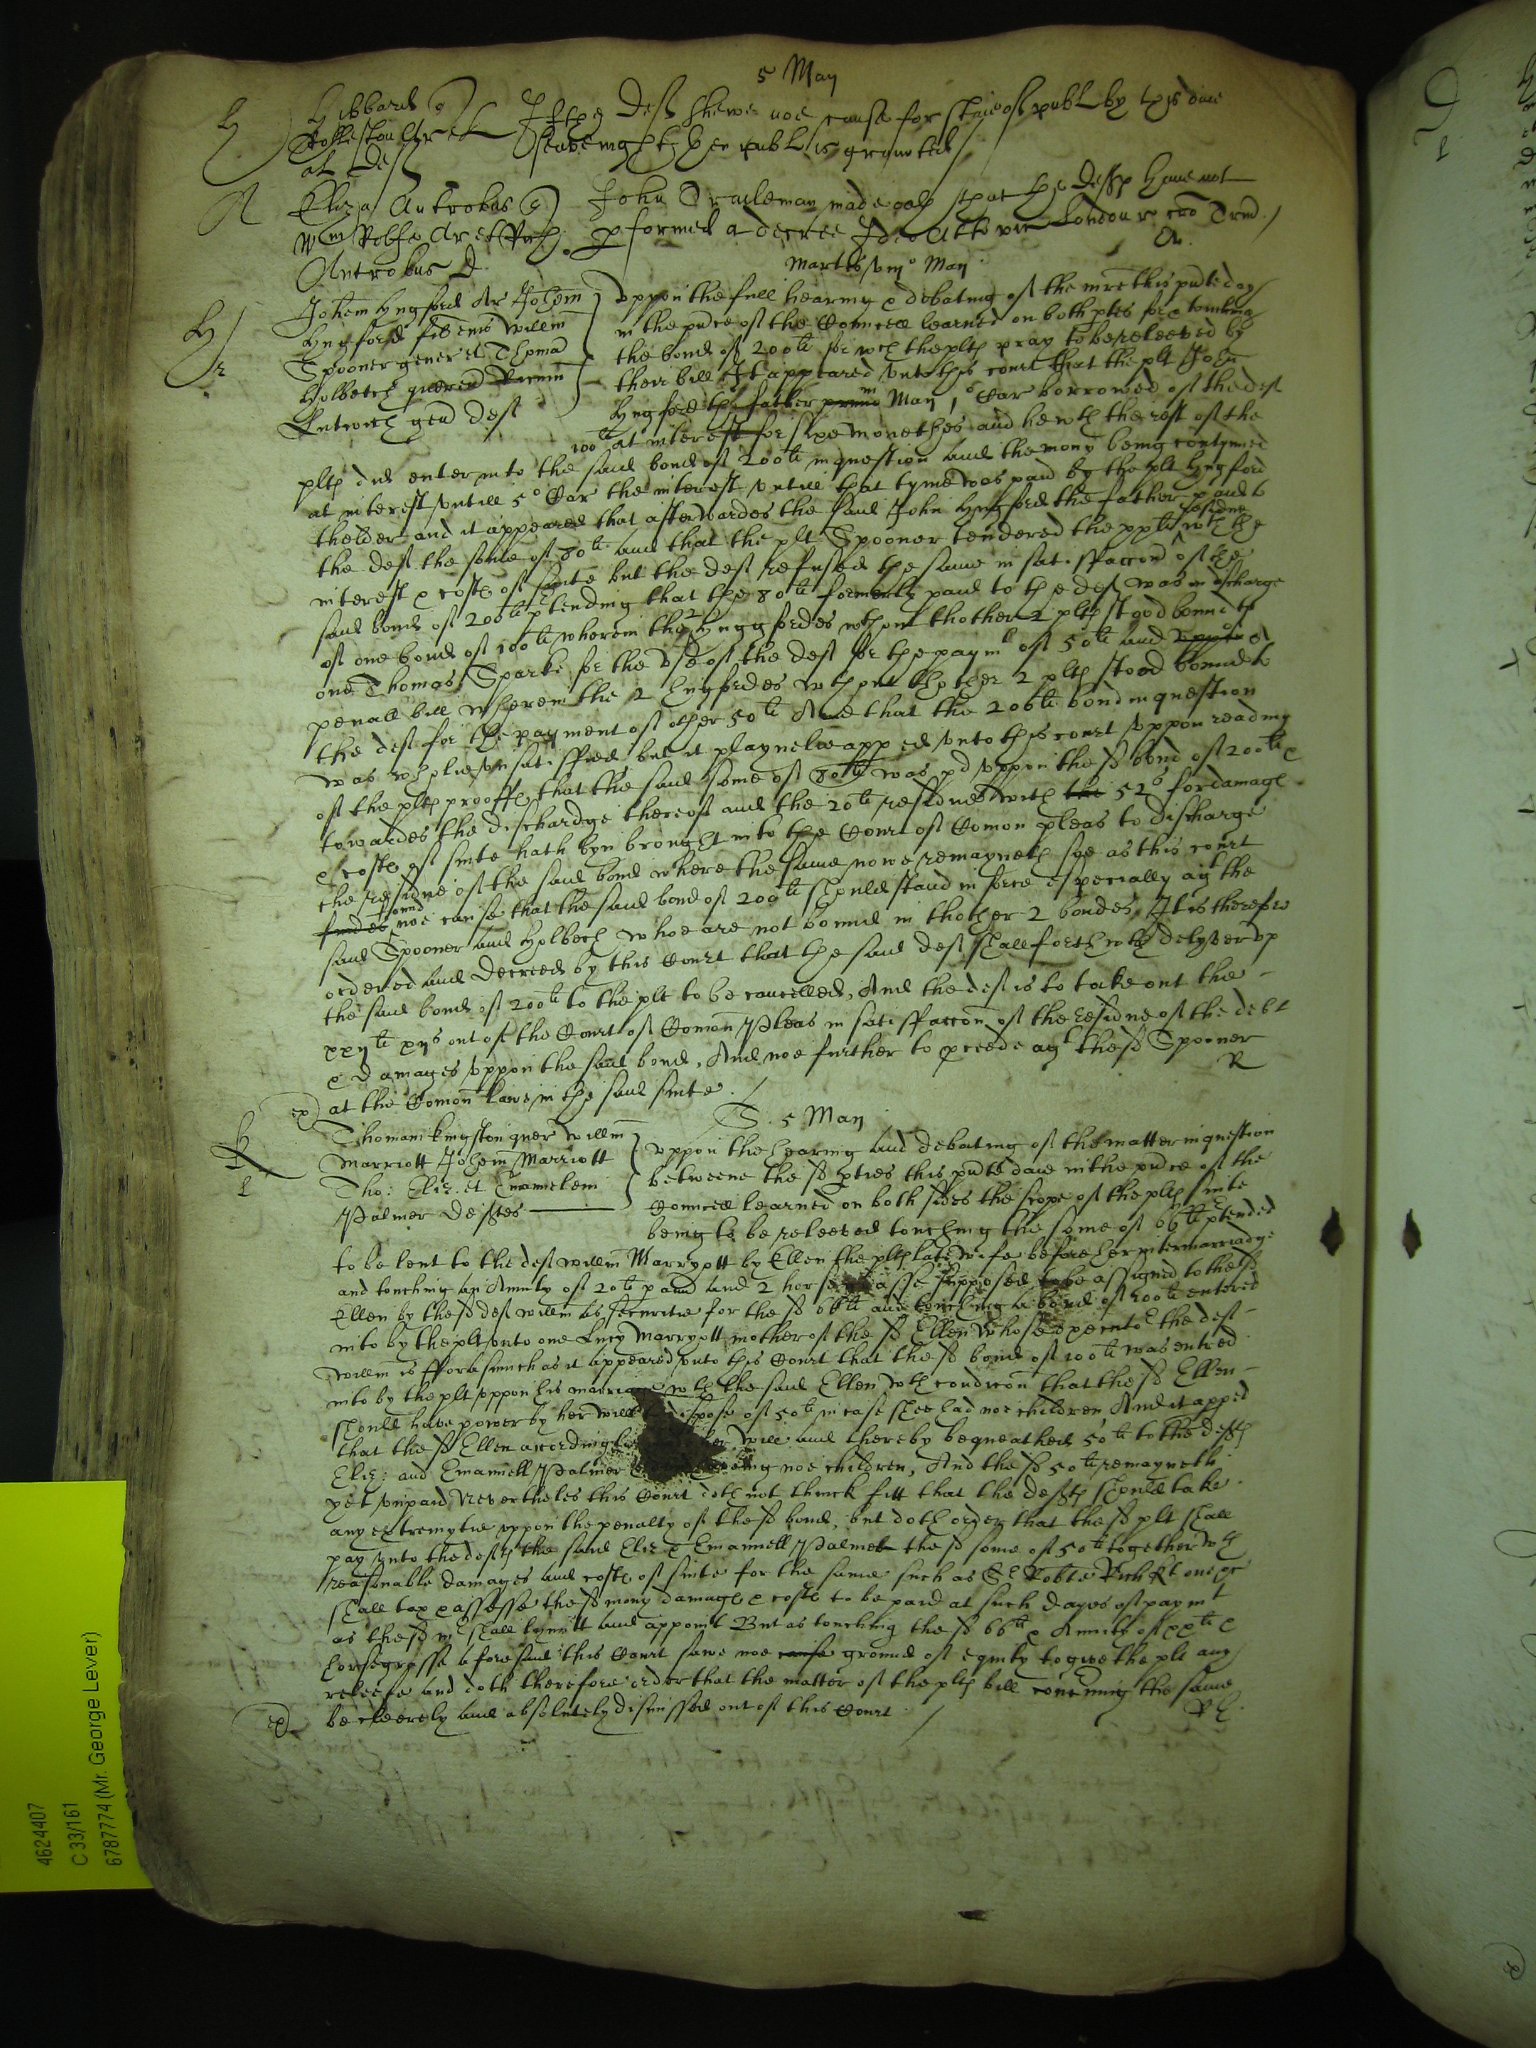 5 May
H Hibbard q
Rolleston Ar et
al Def
If the Deft shewe noe cause for staie of publ by this daie
seavenight then publ is graunted
A Eliza Antrobus q
Wm Rolfe Ar et
Antrobus D
John made oath that the Defts have not
pformed a decree Ideo Att vic London r Trin
Martis May
H Johem Hyngford Ar Johem
Hyngford fil eius Willm
Spooner gener et Thomã
Holbech quer
Lutwich gen deft
Uppon the full hearing & debating of the mre this pnte day
in the pnce of the Councell learned on both ptes for & touching
the bond of 200li for wch the plts pray to be releeved by
their bill It appeared unto this court that the plt John
Hyngford the father May 1o Car borrowed of the deft
100li at interest for sixe monethes and he wth the rest of the
plts did enter into the said bond of 200li in question and the mony being contynued
at interest untill 5o Car the interest untill that tyme was paid by the plt Hyngford
thelder and it appeared that afterwardes the said John Hyngford the father paid to
the deft the some of 80li and that the plt Spooner tendered the xxli residue wth the
interest & costs of suite but the deft refused the same in satisffaccon of the
said bond of 200li ptending that the 80li formerly paid to the deft was in discharge
of one bond of 100li wherein the 2 Hyngfordes wthout thother 2 plts stood bound to
one Thomas Sparke for the use of the deft for the paymt of 50li and of
penall bill wherein the 2 Hyngfordes wthout thother 2 plts stood bound to
the deft for the payment of other 50li And that the 200li bond in question
was wholie unsatisffied but it playnelie apped unto this court uppon reading
of the plts prooffs that the said some of 80li was pd uppon the sd bond of 200li &
towardes the dischardge thereof and the 20li residue with the 52s for damage
& costs of suite hath byn brought into the Court of Comon pleas to discharge
the residue of the said bond where the same nowe remayneth soe as this court
findes found noe cause that the said bond of 200li should stand in force especially agt the
said Spooner and Holbech whoe are not bound in thother 2 bondes, It is therefore
ordered and decreed by this Court that the said deft shall forthwth delyver up
the said bond of 200li to the plt to be cancelled, And the deft is to take out the
xxijli xijs out of the Court of Comon Pleas in satisffaccon of the residue of the debt
& damages uppon the said bond, And noe further to pceede agt the sd Spooner
at the Comon Lawe in the said suite
R
ex
S. 5 May
K Thomam Kingston quer Willm
Marriott Johem Marriott
Tho: Eliz: et Emanuelem
Palmer Deftes
Uppon the hearing and debating of the matter in question
betweene the sd pties this pnte daie in the pnce of the
Councell learned on both sides the scope of the plts suite
being to be releeved touching the some of 66li ptended
to be lent to the deft Willm Marryott by Ellen the plts late wife before her intermarriadge
and touching an Annuity of 20li p and and 2 horse supposed to be assigned to the sd
Ellen by the sd deft Willm as securitie for the sd 66li and touching a bond of 100li entered
into by the plt unto one Lucy Marryott mother of the sd Ellen whose executor the deft
Willm is fforasmuch as it appeared unto this Court that the sd bond of 100li was entred
into by the plt uppon his marriage wth the said Ellen wth condicon that the sd Ellen
should have power by her will to dispose of 50li in case shee had noe children And it apped
that the sd Ellen accordingly will and thereby bequeathed 50li to the defts
Eliz: and Emanuell Palmer noe children, And the sd 50li remayneth
yet unpaid Nevertheles this Court doth not thinck fitt that the defts should take
any extremytie uppon the penalty of the sd bond, but doth order that the sd plt shall
pay unto the defts the said Eliz & Emanuell Palmer the sd some of 50li together wth
reasonable damages and costs of suite for the same such as Sr Robte Rich Kt one &c
shall tax & assesse the sd mony damages & costs to be paid at such dayes of paymt
as the sd mr shall lymitt and appoint But as touching the sd 66li & Annuity of xxli &
horsegrasse aforesaid this Court sawe noe cause ground of equity to give the plt any
releefe and doth therefore order that the matter of the plts bill concerning the same
be cleerely and absolutely dismissed out of this Court
ex
4624407
C 33/161
6787774 (Mr. George Lever)